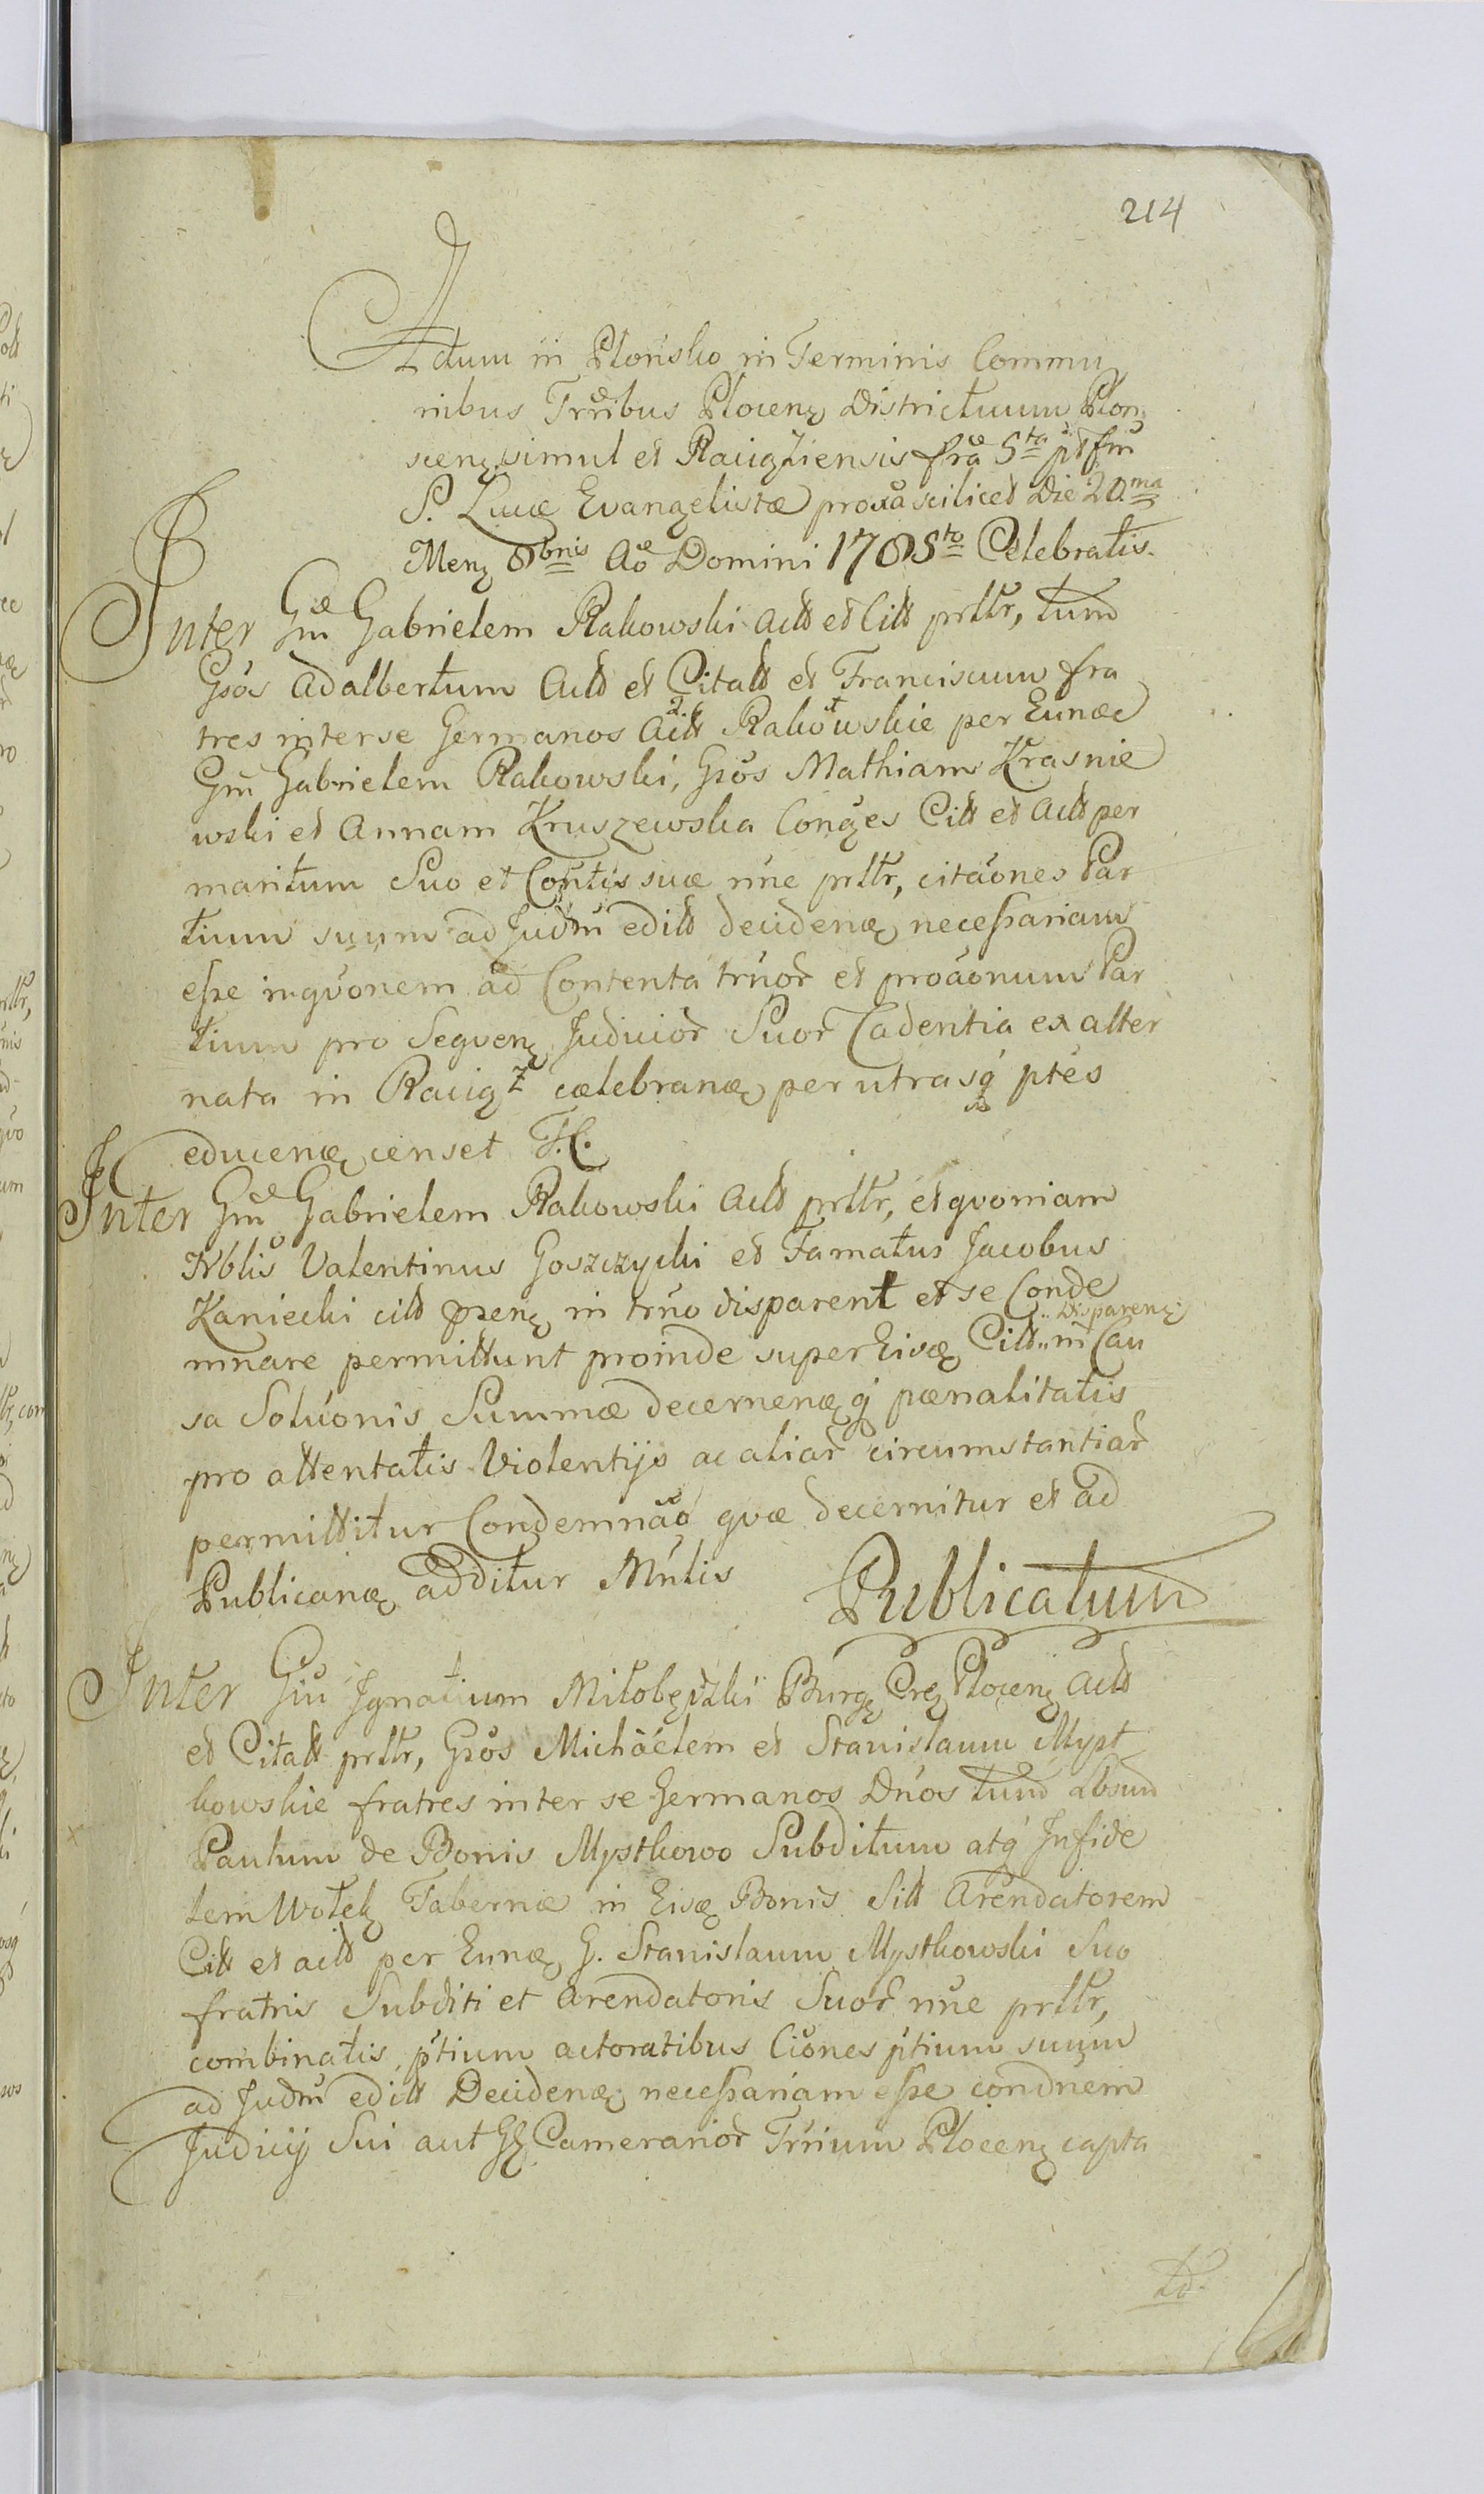 214
Actum in Płońsko in Terminis Commu
nibus Trribus Plocenʒ Districtuum Plon
scenʒ simul et Raciąziensis fra 5ta pt fm
S. Lucæ Evangelistæ proxa scilicet Die 20ma
Menʒ 8bris Ao Domini 1785to Celebratis.
Inter Gm Gabrielem Rakowski Actt et Citt prltr, tum
Gsos Adalbertum Actt et Citatt et Franciscum fra
tres inter se Germanos Actt Rakowskie per Eunde
Gm Gabrielem Rakowski, Gsos Mathiam Krasnie
wski et Annam Kruszewska Conges Citt et Actt per
maritum Suo et Contis suæ nne prltr, citaones Par
tium suum ad Judm editt decidenæ necessariam
esse inqvonem ad Contenta trnor et proaonum Par
tium pro Seqvenʒ Judicior Suor Cadentia ex alter
nata in Raciąz cælebranæ per utrasq ptes
educenæ censet T.C.
Inter Gm Gabrielem Rakowski Actt prltr, et qvoniam
Nblis Valentinus Goszczycki et Famatus Jacobus
Kaniecki citt præsenʒ in trno disparent et se Conde
mnare permittunt proinde super Eisdæ Citt.. in Cau
.. Disparenʒ
sa Soluonis Summæ decernenæ q pænalitatis
pro attentatis Violentijs ac aliar circumstantiar
permittitur Condemnao qvæ decernitur et ad
Publicanæ additur Mntis
Publicatum
Inter Gm Ignatium Miłobędzki Burgʒ Creʒ Plocenʒ Actt
et Citatt prltr, Gsos Michaelem et Stanislaum Myst
kowskie fratres inter se Germanos Dnos tum Lbsum
Paulum de Bonis Mystkowo Subditum atq Infide
lem Wołek Tabernæ in Eisdæ Bonis Sitt Arendatorem
Citt et actt per Eundæ G. Stanislaum Mystkowski Suo
fratris Subditi et Arendatoris Suor nne prltr,
combinatis ptium actoratibus Ciones ptium suum
ad Judm editt Decidenæ necessariam esse condnem
Judicij Sui aut Gg Camerarior Trrium Plocenʒ capta